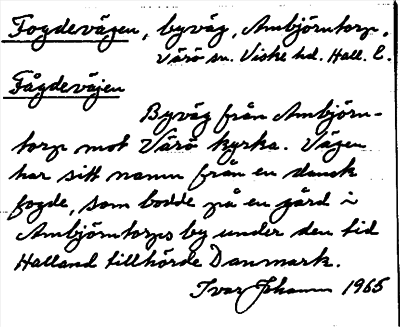 Fogdevägen, byväg, Ambjörntorp,
Värö sn. Viske hd. Hall. l.
Fågdeväjen
Byväg från Ambjörn-
torp mot Värö kyrka. Vägen
har sitt namn från en dansk
fogde, som bodde på en gård i
Ambjörntorps by under den tid
Halland tillhörde Danmark.
Ivar Johansson 1965